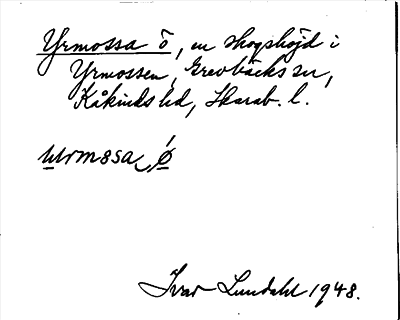 Yrmossa ö, en skogshöjd i
Yrmossen, Grevbäcks sn,
Kåkinds hd, Skarab. l.
Ivar Lundahl 1948.